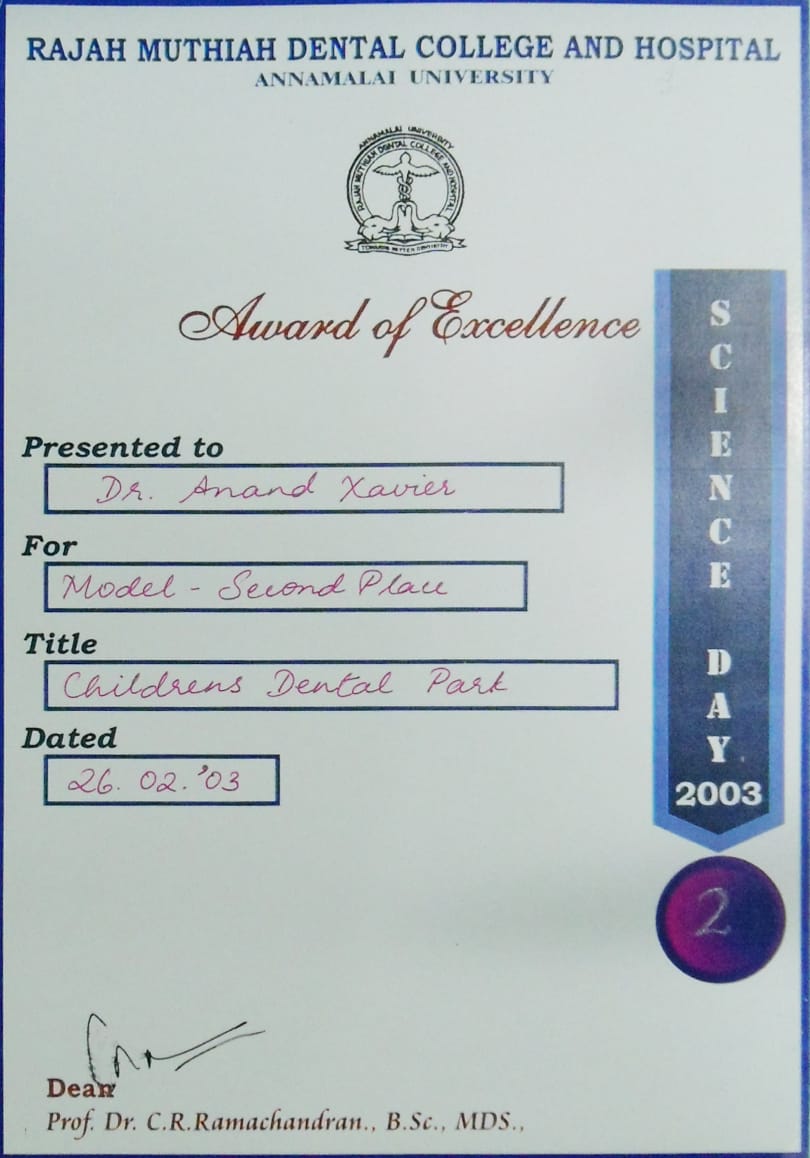 RAJAH MUTHIAH DENTAL COLLEGE AND HOSPITAL
ANNAMALAI UNIVERSITY
ANNAMALAI UNIVERSITY
RAJAH MUTHIAH DENTAL COLLEGE AND HOSPITAL
TOWARDS BETTER DENTISTRY
Award of Excellence
Presented to
Dr. Anand Xavier
For
Model - Second Place
Title
Childrens Dental Park
Dated
26. 02. '03
SCIENCE DAY
2003
2
Dean
Prof. Dr. C.R.Ramachandran., B.Sc., MDS.,